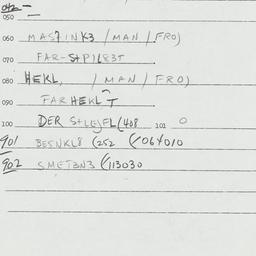 042 —
050 —
060 MASTINK3 / MAN / FRO)
070 FAR-S+P1L83T
080 HEKL, / MAN / FRO)
090 FAR HEKL T
100 DER 101 0
901 BESNKL8 (252 (/064010
902 SMETBN3 (113030